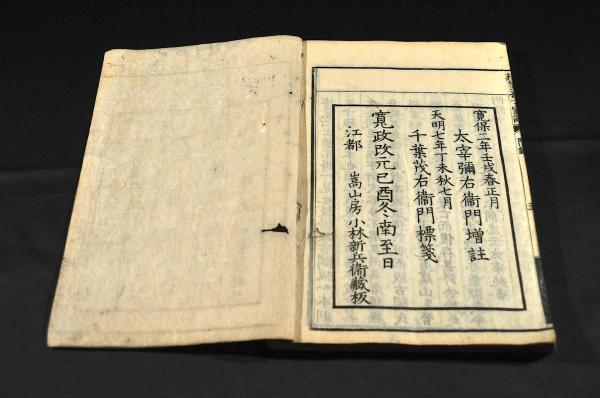 寛保二年壬戌春正月
太宰彌右衞門增註
天明七年丁未秋七月
千葉茂右衞門標箋
寛政改元己酉冬南至日
江都 嵩山房小林新兵衞藏板